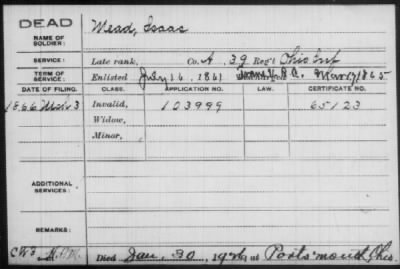 DEAD
NAME OF
SOLDIER:
Mead, Isaac
SERVICE:
Late rank, Co. A, 39 Reg't Ohio Inf
TERM OF
SERVICE:
Enlisted July 16, 1861 V.R.C. Mar 17 1865
DATE OF FILING. CLASS. APPLICATION NO. LAW. CERTIFICATE NO.
1866 Mch 3 Invalid, 103999 65123
Widow,
Minor,
ADDITIONAL
SERVICES:
REMARKS:
Died Jan. 30, 192 at Portsmouth Ohio